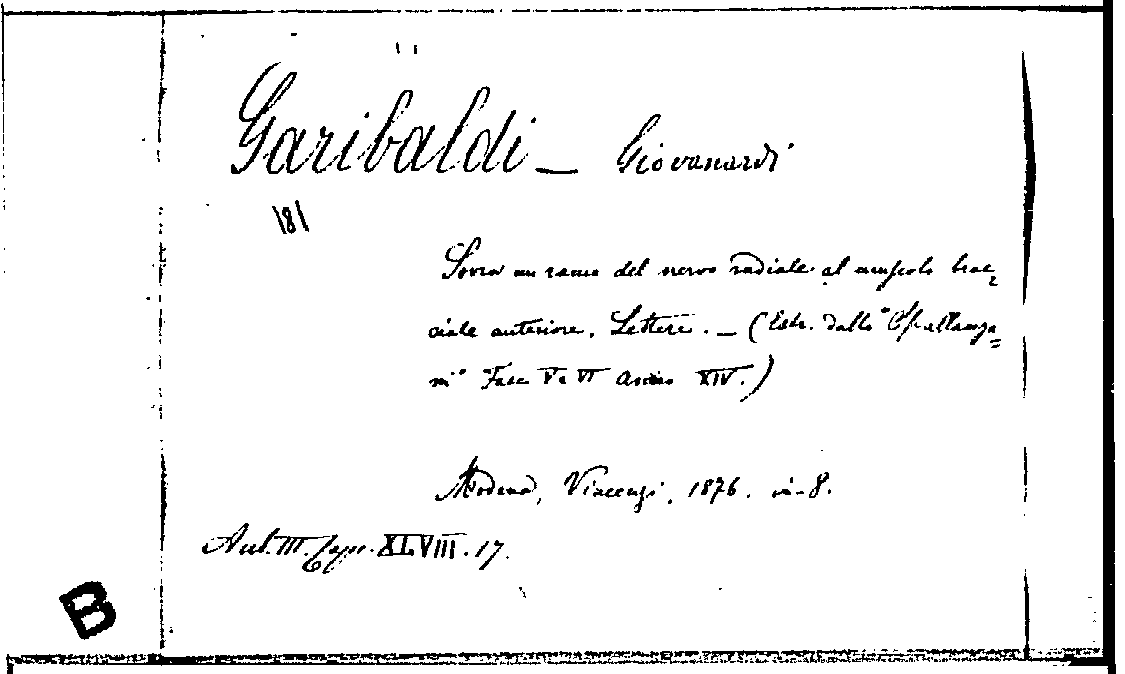 Garibaldi — Giovanardi
181
Sovra un ramo del nervo radiale al muscolo brac=
ciale anteriore. Lettere. — (Estr. dallo "Spallanza=
ni" Fasc V e VI Anno XIV.)
Modena, Vincenzi, 1876. in-8.
Aul. III. Capp. XLVIII. 17.
B